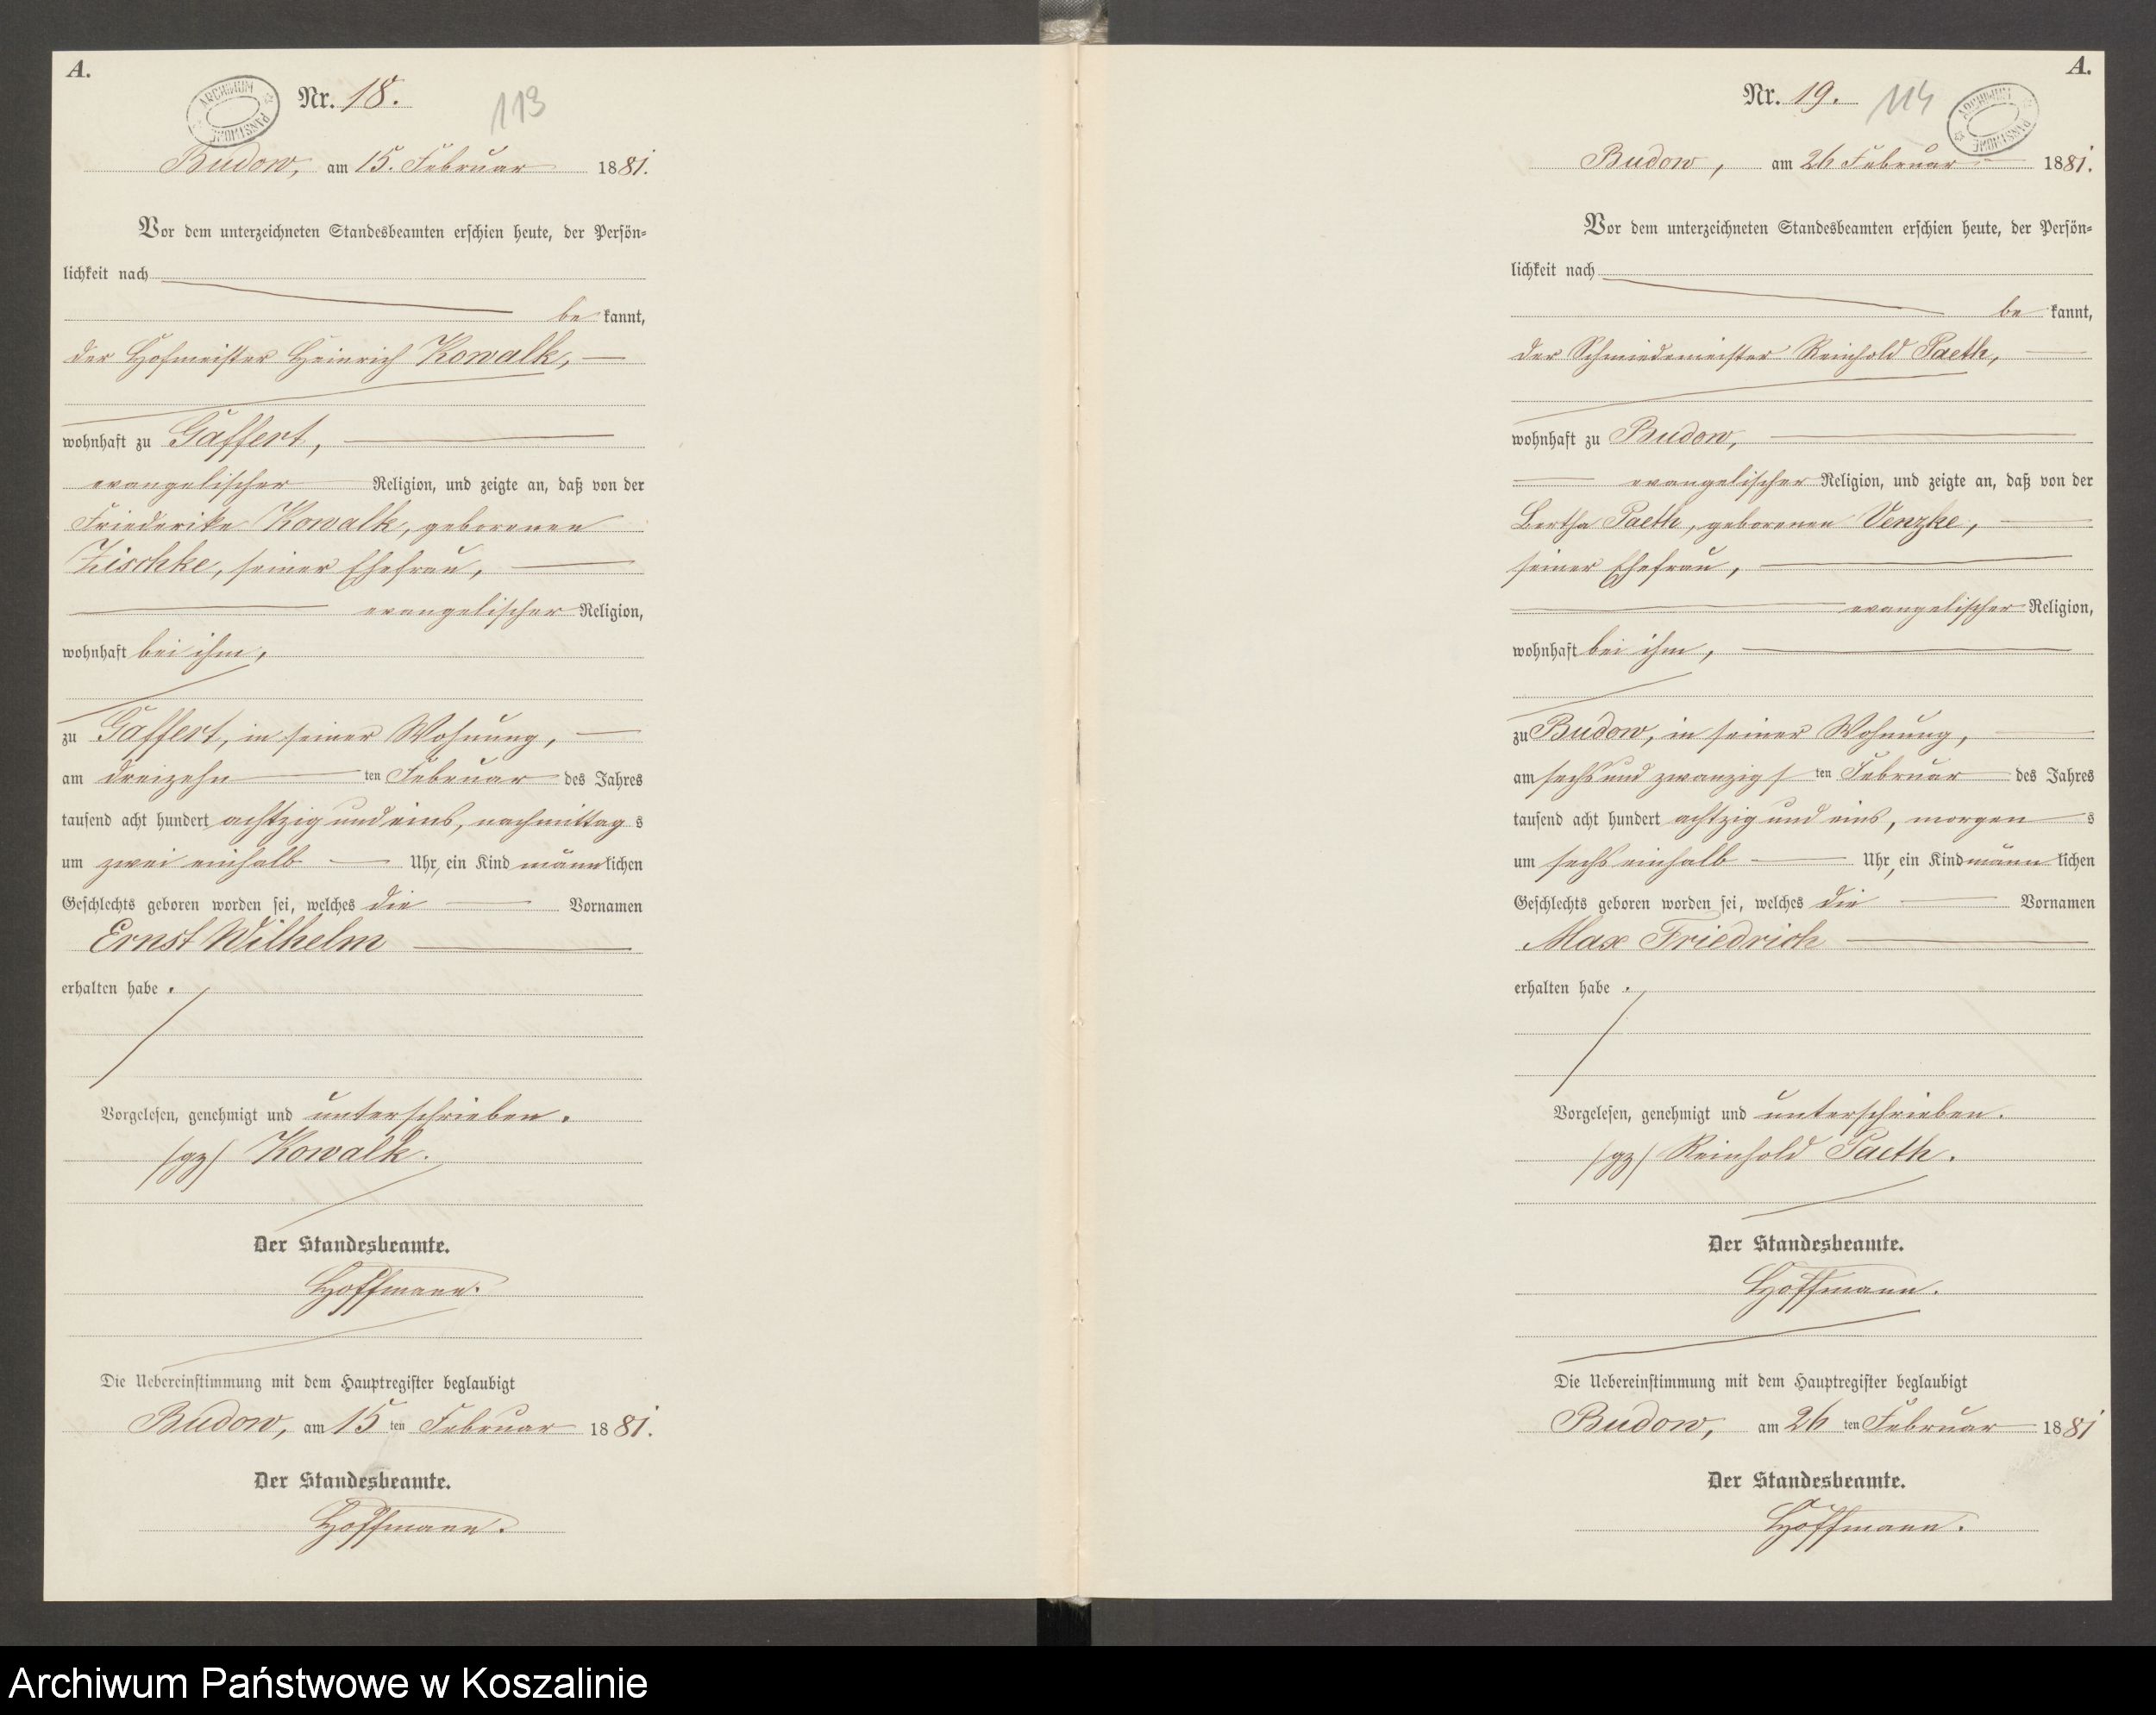 A.
ARCHIWUM PAŃSTWOWE
Nr. 18.
113
Budow, am 15. Februar 1881.
Vor dem unterzeichneten Standesbeamten erschien heute, der Persön-
lichkeit nach
be kannt,
der Hofmeister Heinrich Kowalk,
wohnhaft zu Gaffert,
evangelischer Religion, und zeigte an, daß von der
Friederike Kowalk, geborenen
Zischke, seiner Ehefrau,
evangelischer Religion,
wohnhaft bei ihm,
zu Gaffert, in seiner Wohnung,
am dreizehn ten Februar des Jahres
tausend acht hundert achtzig und eins, nachmittag s
um zwei einhalb Uhr, ein Kind männ lichen
Geschlechts geboren worden sei, welches die Vornamen
Ernst Wilhelm
erhalten habe.
Vorgelesen, genehmigt und unterschrieben.
/gz/ Kowalk.
Der Standesbeamte.
Hoffmann.
Die Uebereinstimmung mit dem Hauptregister beglaubigt
Budow, am 15 ten Februar 1881.
Der Standesbeamte.
Hoffmann.
A.
Nr. 19.
114
ARCHIWUM PAŃSTWOWE
Budow, am 26 Februar 1881.
Vor dem unterzeichneten Standesbeamten erschien heute, der Persön-
lichkeit nach
be kannt,
der Schmiedemeister Reinhold Paeth,
wohnhaft zu Budow,
evangelischer Religion, und zeigte an, daß von der
Bertha Paeth, geborenen Venzke,
seiner Ehefrau,
evangelischer Religion,
wohnhaft bei ihm,
zu Budow, in seiner Wohnung,
am sechs und zwanzig s ten Februar des Jahres
tausend acht hundert achtzig und eins, morgen s
um sechs einhalb Uhr, ein Kind männ lichen
Geschlechts geboren worden sei, welches die Vornamen
Max Friedrich
erhalten habe.
Vorgelesen, genehmigt und unterschrieben.
/gz/ Reinhold Paeth.
Der Standesbeamte.
Hoffmann.
Die Uebereinstimmung mit dem Hauptregister beglaubigt
Budow, am 26 ten Februar 1881
Der Standesbeamte.
Hoffmann.
Archiwum Państwowe w Koszalinie